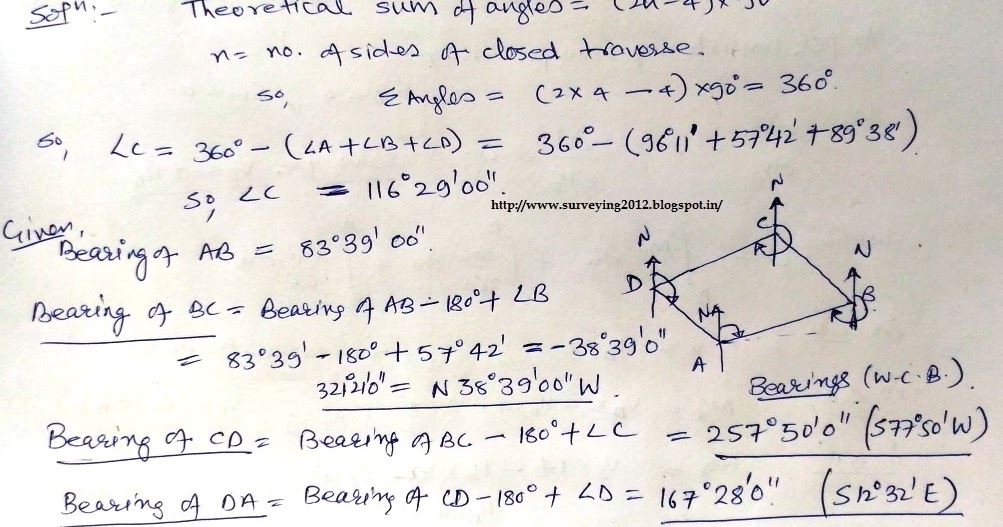 Solⁿ:- Theoretical sum of angles = (2n-4)×90
n = no. of sides of closed traverse.
so, Σ Angles = (2×4-4)×90° = 360°.
so, ∠C = 360° - (∠A+∠B+∠D) = 360° - (96°11' + 57°42' + 89°38')
so, ∠C = 116°29'00".
http://www.surveying2012.blogspot.in/
Given,
Bearing of AB = 83°39'00".
Bearing of BC = Bearing of AB - 180° + ∠B
= 83°39' - 180° + 57°42' = -38°39'0"
321°21'0" = N 38°39'00" W.
Bearing of CD = Bearing of BC - 180° + ∠C = 257°50'0" (S77°50'W)
Bearing of DA = Bearing of CD - 180° + ∠D = 167°28'0" (S12°32'E)
N
C
N
N
D
B
N
A
A
Bearings (W.C.B.).